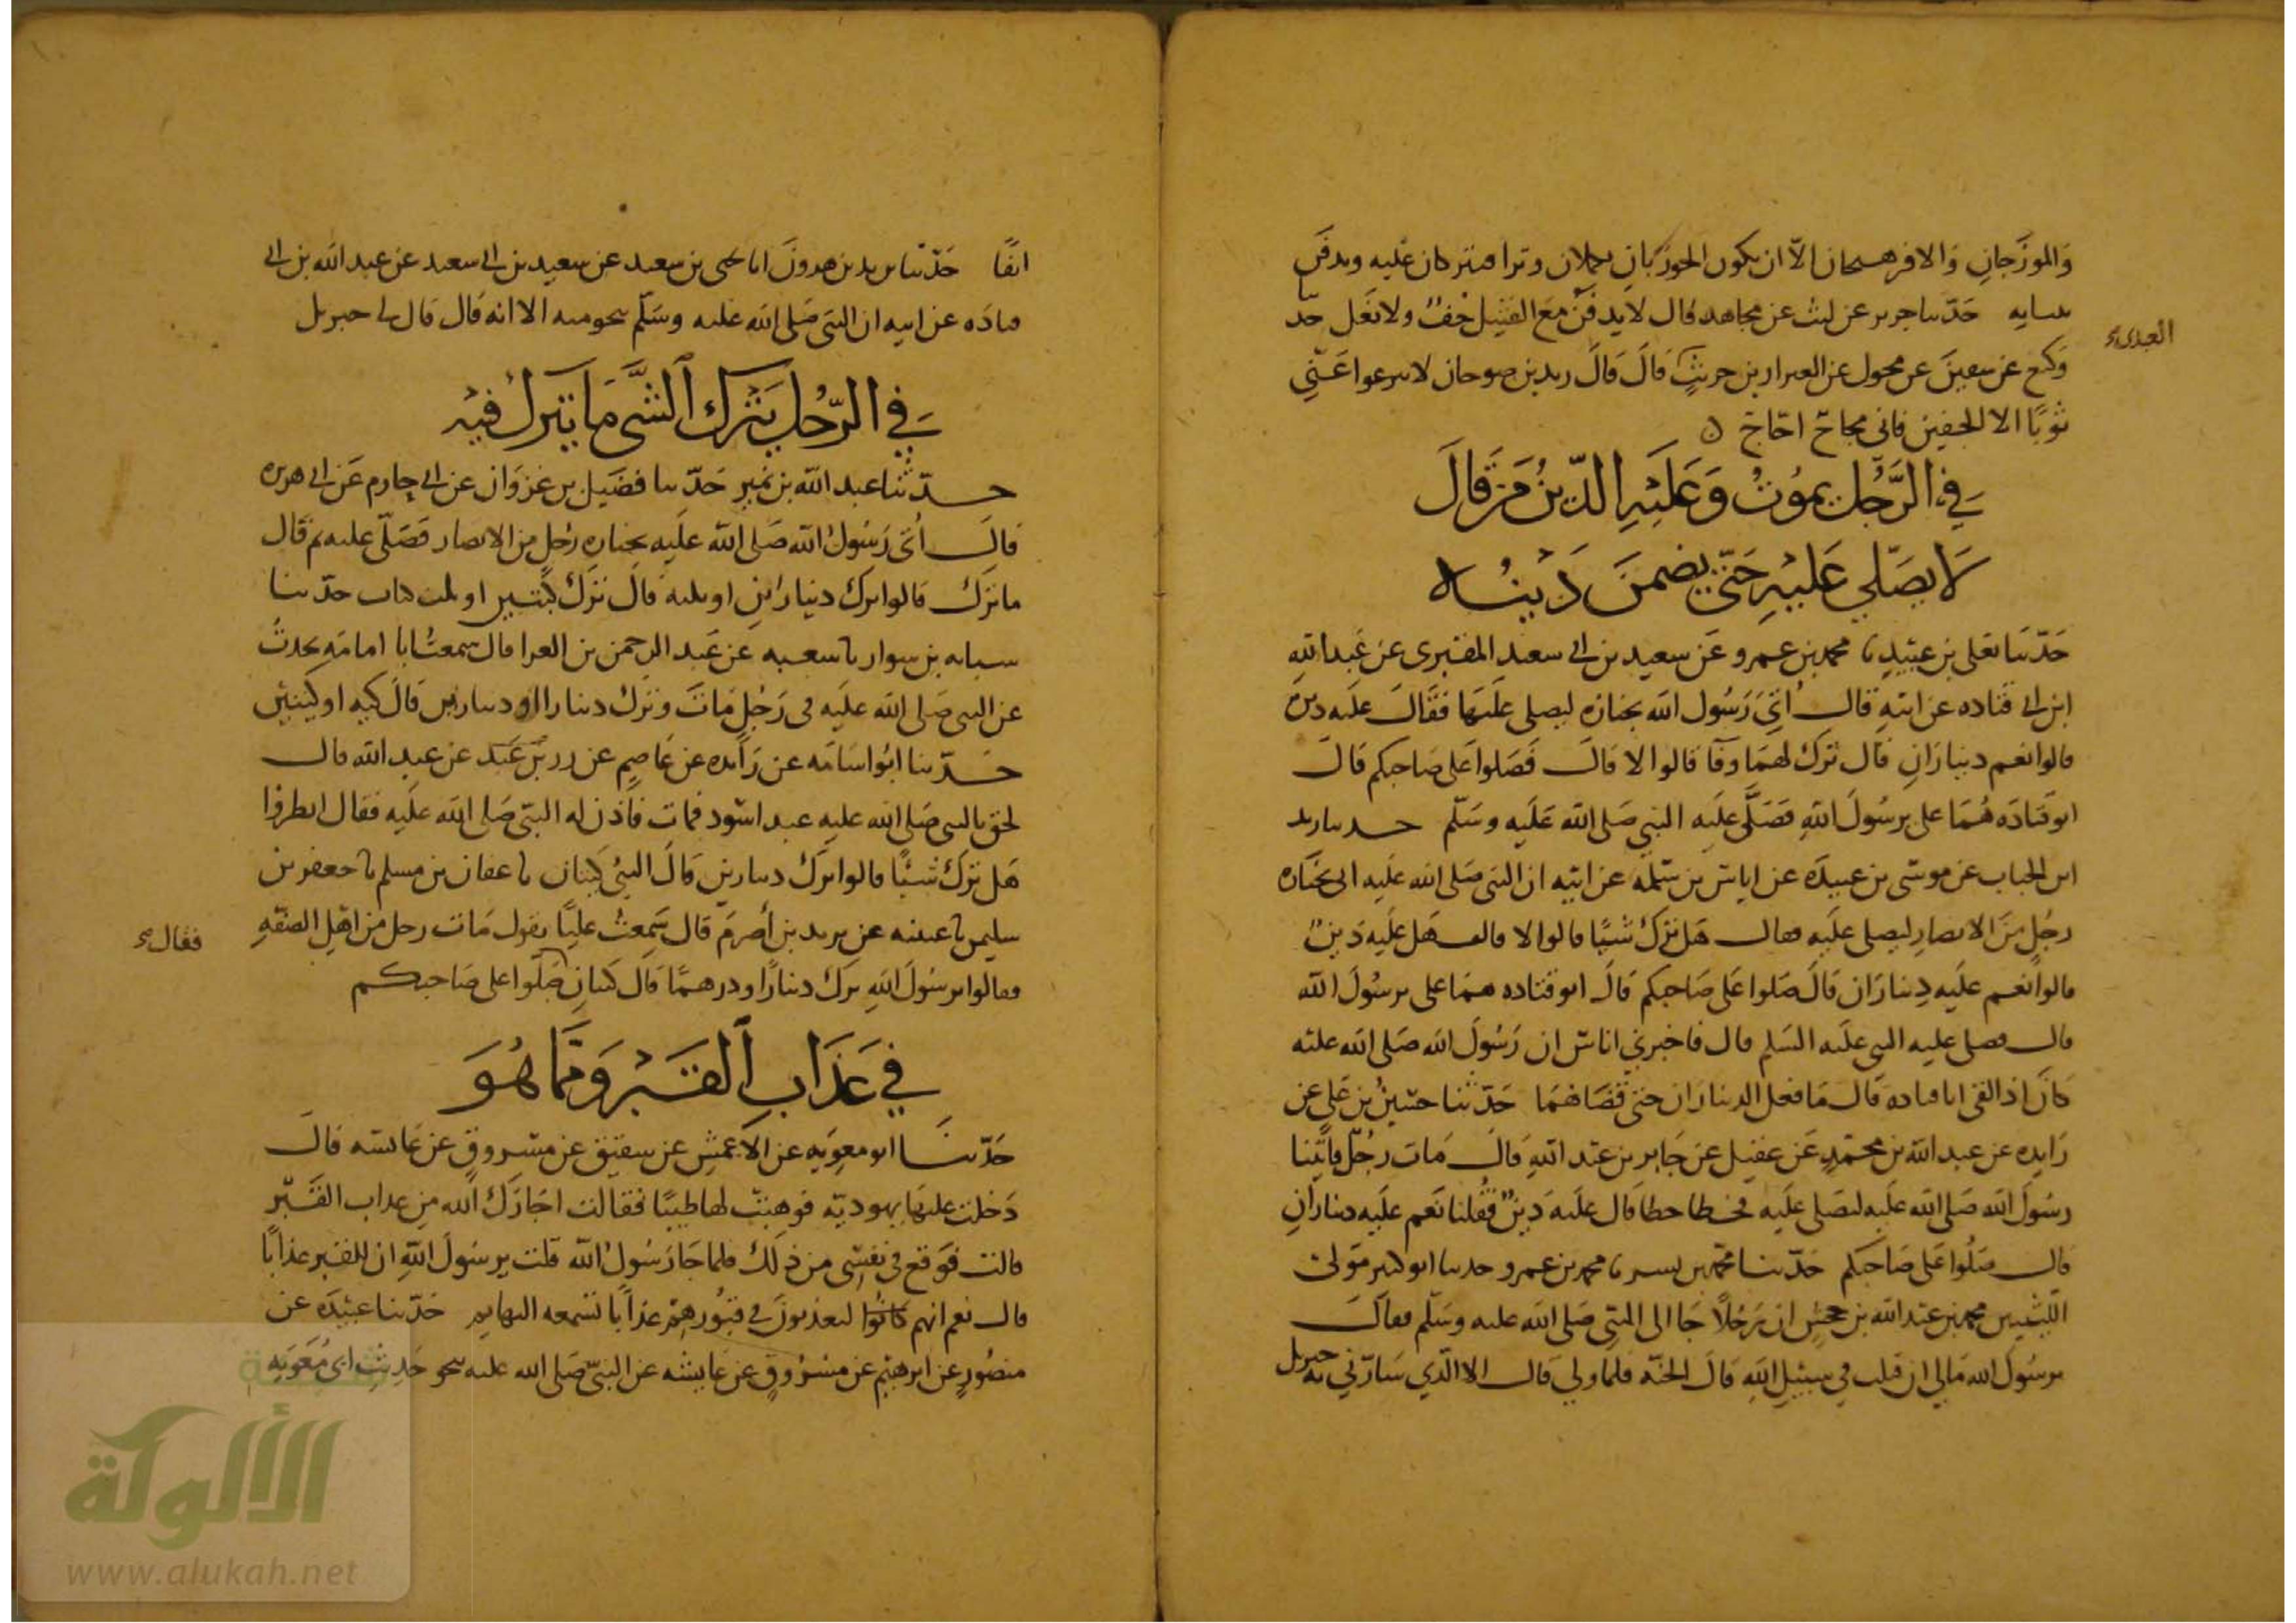 والموزجان والافرهيجان الا ان يكون الجوربان يكملان وترا فيترکان عليه ويدفن
بثيابه حدثنا جرير عن ليث عن مجاهد قال لا يدفن مع القتيل خف ولا نعل حدثنا
العبدي
وكيع عن سفين عن مخول عن العيزار بن حريث قال قال زيد بن صوحان لا تنزعوا عني
ثوبا الا الخفين فاني محاج احاج
في الرجل يموت وعليه الدين من قال
لا يصلي عليه حتى يضمن دينه
حدثنا يعلى بن عبيد نا محمد بن عمرو عن سعيد بن ابي سعيد المقبري عن عبد الله
ابن ابي قتاده عن ابيه قال اتي رسول الله بجنازه ليصلي عليها فقال عليه دين
قالوا نعم ديناران قال ترك لهما وفا قالوا لا قال فصلوا على صاحبكم قال
ابو قتاده هما علي يرسول الله فصلى عليه النبي صلى الله عليه وسلم حدثنا زيد
ابن الحباب عن موسى بن عبيده عن اياس بن سلمه عن ابيه ان النبي صلى الله عليه اتي بجنازه
رجل من الانصار ليصلي عليه فقال هل ترك شيئا قالوا لا قال هل عليه دين
قالوا نعم عليه ديناران قال صلوا على صاحبكم قال ابو قتاده هما علي يرسول الله
قال فصلى عليه النبي عليه السلم قال فاخبرني اناس ان رسول الله صلى الله عليه
كان اذا لقي ابا قتاده قال ما فعل الديناران حتى قضاهما حدثنا حسين بن علي عن
زايده عن عبد الله بن محمد عن عقيل عن جابر بن عبد الله قال مات رجل فاتينا
رسول الله صلى الله عليه ليصلي عليه فخطا خطا قال عليه دين فقلنا نعم عليه ديناران
قال صلوا على صاحبكم حدثنا محمد بن بشر نا محمد بن عمرو حدثنا ابو كثير مولى
الليثيين محمد بن عبد الله بن جحش ان رجلا جا الى النبي صلى الله عليه وسلم فقال
يرسول الله مالي ان قتلت في سبيل الله قال الجنه فلما ولي قال الا الذي سارني به جبريل
انفا حدثنا يزيد بن هرون انا يحيى بن سعيد عن سعيد بن ابي سعيد عن عبد الله بن ابي
قتاده عن ابيه ان النبي صلى الله عليه وسلم بنحو منه الا انه قال قال لي جبريل
في الرجل يترك الشي ما يترك فيه
حدثنا عبد الله بن نمير حدثنا فضيل بن غزوان عن ابي حازم عن ابي هريره
قال اتي رسول الله صلى الله عليه بجنازه رجل من الانصار فصلى عليه ثم قال
ما ترك قالوا ترك دينارين او ثلثه قال ترك كيتين او ثلث كيات حدثنا
شبابه بن سوار نا شعبه عن عبد الرحمن بن العدا قال سمعت ابا امامه يحدث
عن النبي صلى الله عليه في رجل مات وترك دينارا او دينارين قال كيه او كيتين
حدثنا ابو اسامه عن زايده عن عاصم عن زر بن عبد عن عبد الله قال
لحق بالنبي صلى الله عليه عبد اسود فمات فاذن له النبي صلى الله عليه فقال انظروا
هل ترك شيئا قالوا ترك دينارين قال النبي كيتان نا عفان بن مسلم نا جعفر بن
سليمن نا عتيبه عن بريد بن اصرم قال سمعت عليا يقول مات رجل من اهل الصفه
فقال
فقالوا يرسول الله ترك دينارا ودرهما قال كيتان صلوا على صاحبكم
في عذاب القبر ومما هو
حدثنا ابو معويه عن الاعمش عن شقيق عن مسروق عن عايشه قالت
دخلت عليها يهوديه فوهبت لها طيبا فقالت اجارك الله من عذاب القبر
قالت فوقع في نفسي من ذلك فلما جا رسول الله قلت يرسول الله ان للقبر عذابا
قال نعم انهم كانوا ليعذبون في قبورهم عذابا تسمعه البهايم حدثنا عبيده عن
منصور عن ابرهيم عن مسروق عن عايشه عن النبي صلى الله عليه نحو حديث ابي معويه
الألوكة
www.alukah.net